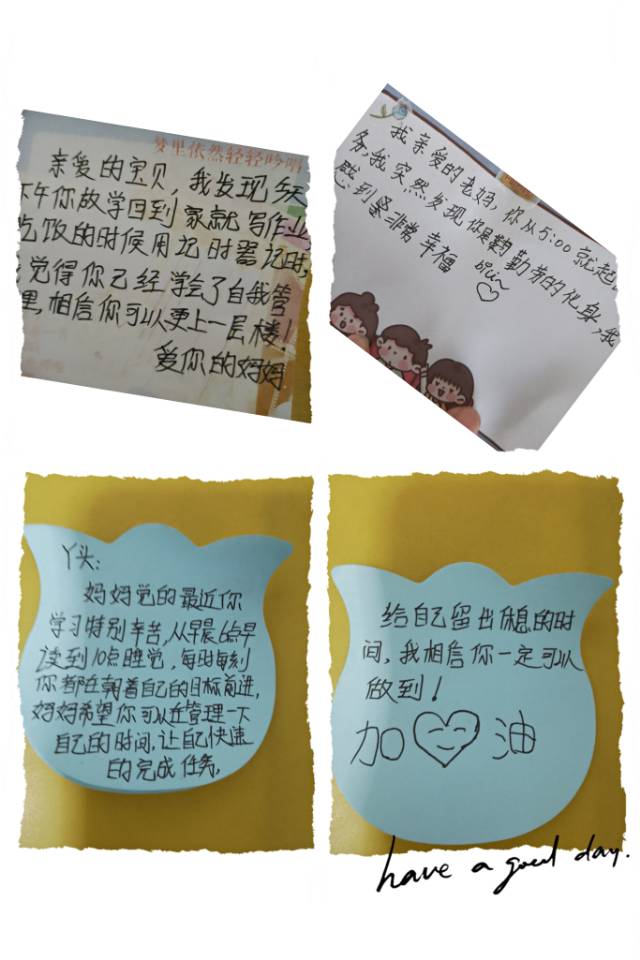 梦里依然轻轻吟唱
亲爱的宝贝，我发现今天
下午你放学回到家就写作业，
吃饭的时候用记时器记时，
觉得你已经学会了自我管
里，相信你可以更上一层楼！
爱你的妈妈
我亲爱的老妈，你从5:00就起
务，我突然发现你是勤劳的化身，我
感到非常幸福
丫头：
妈妈觉的最近你
学习特别辛苦，从早晨6点早
读到10点睡觉，每时每刻
你都在朝着自己的目标前进，
妈妈希望你可以在管理一下
自己的时间，让自己快速
的完成任务，
给自己留出休息的时
间，我相信你一定可以
做到！
加油
have a good day.